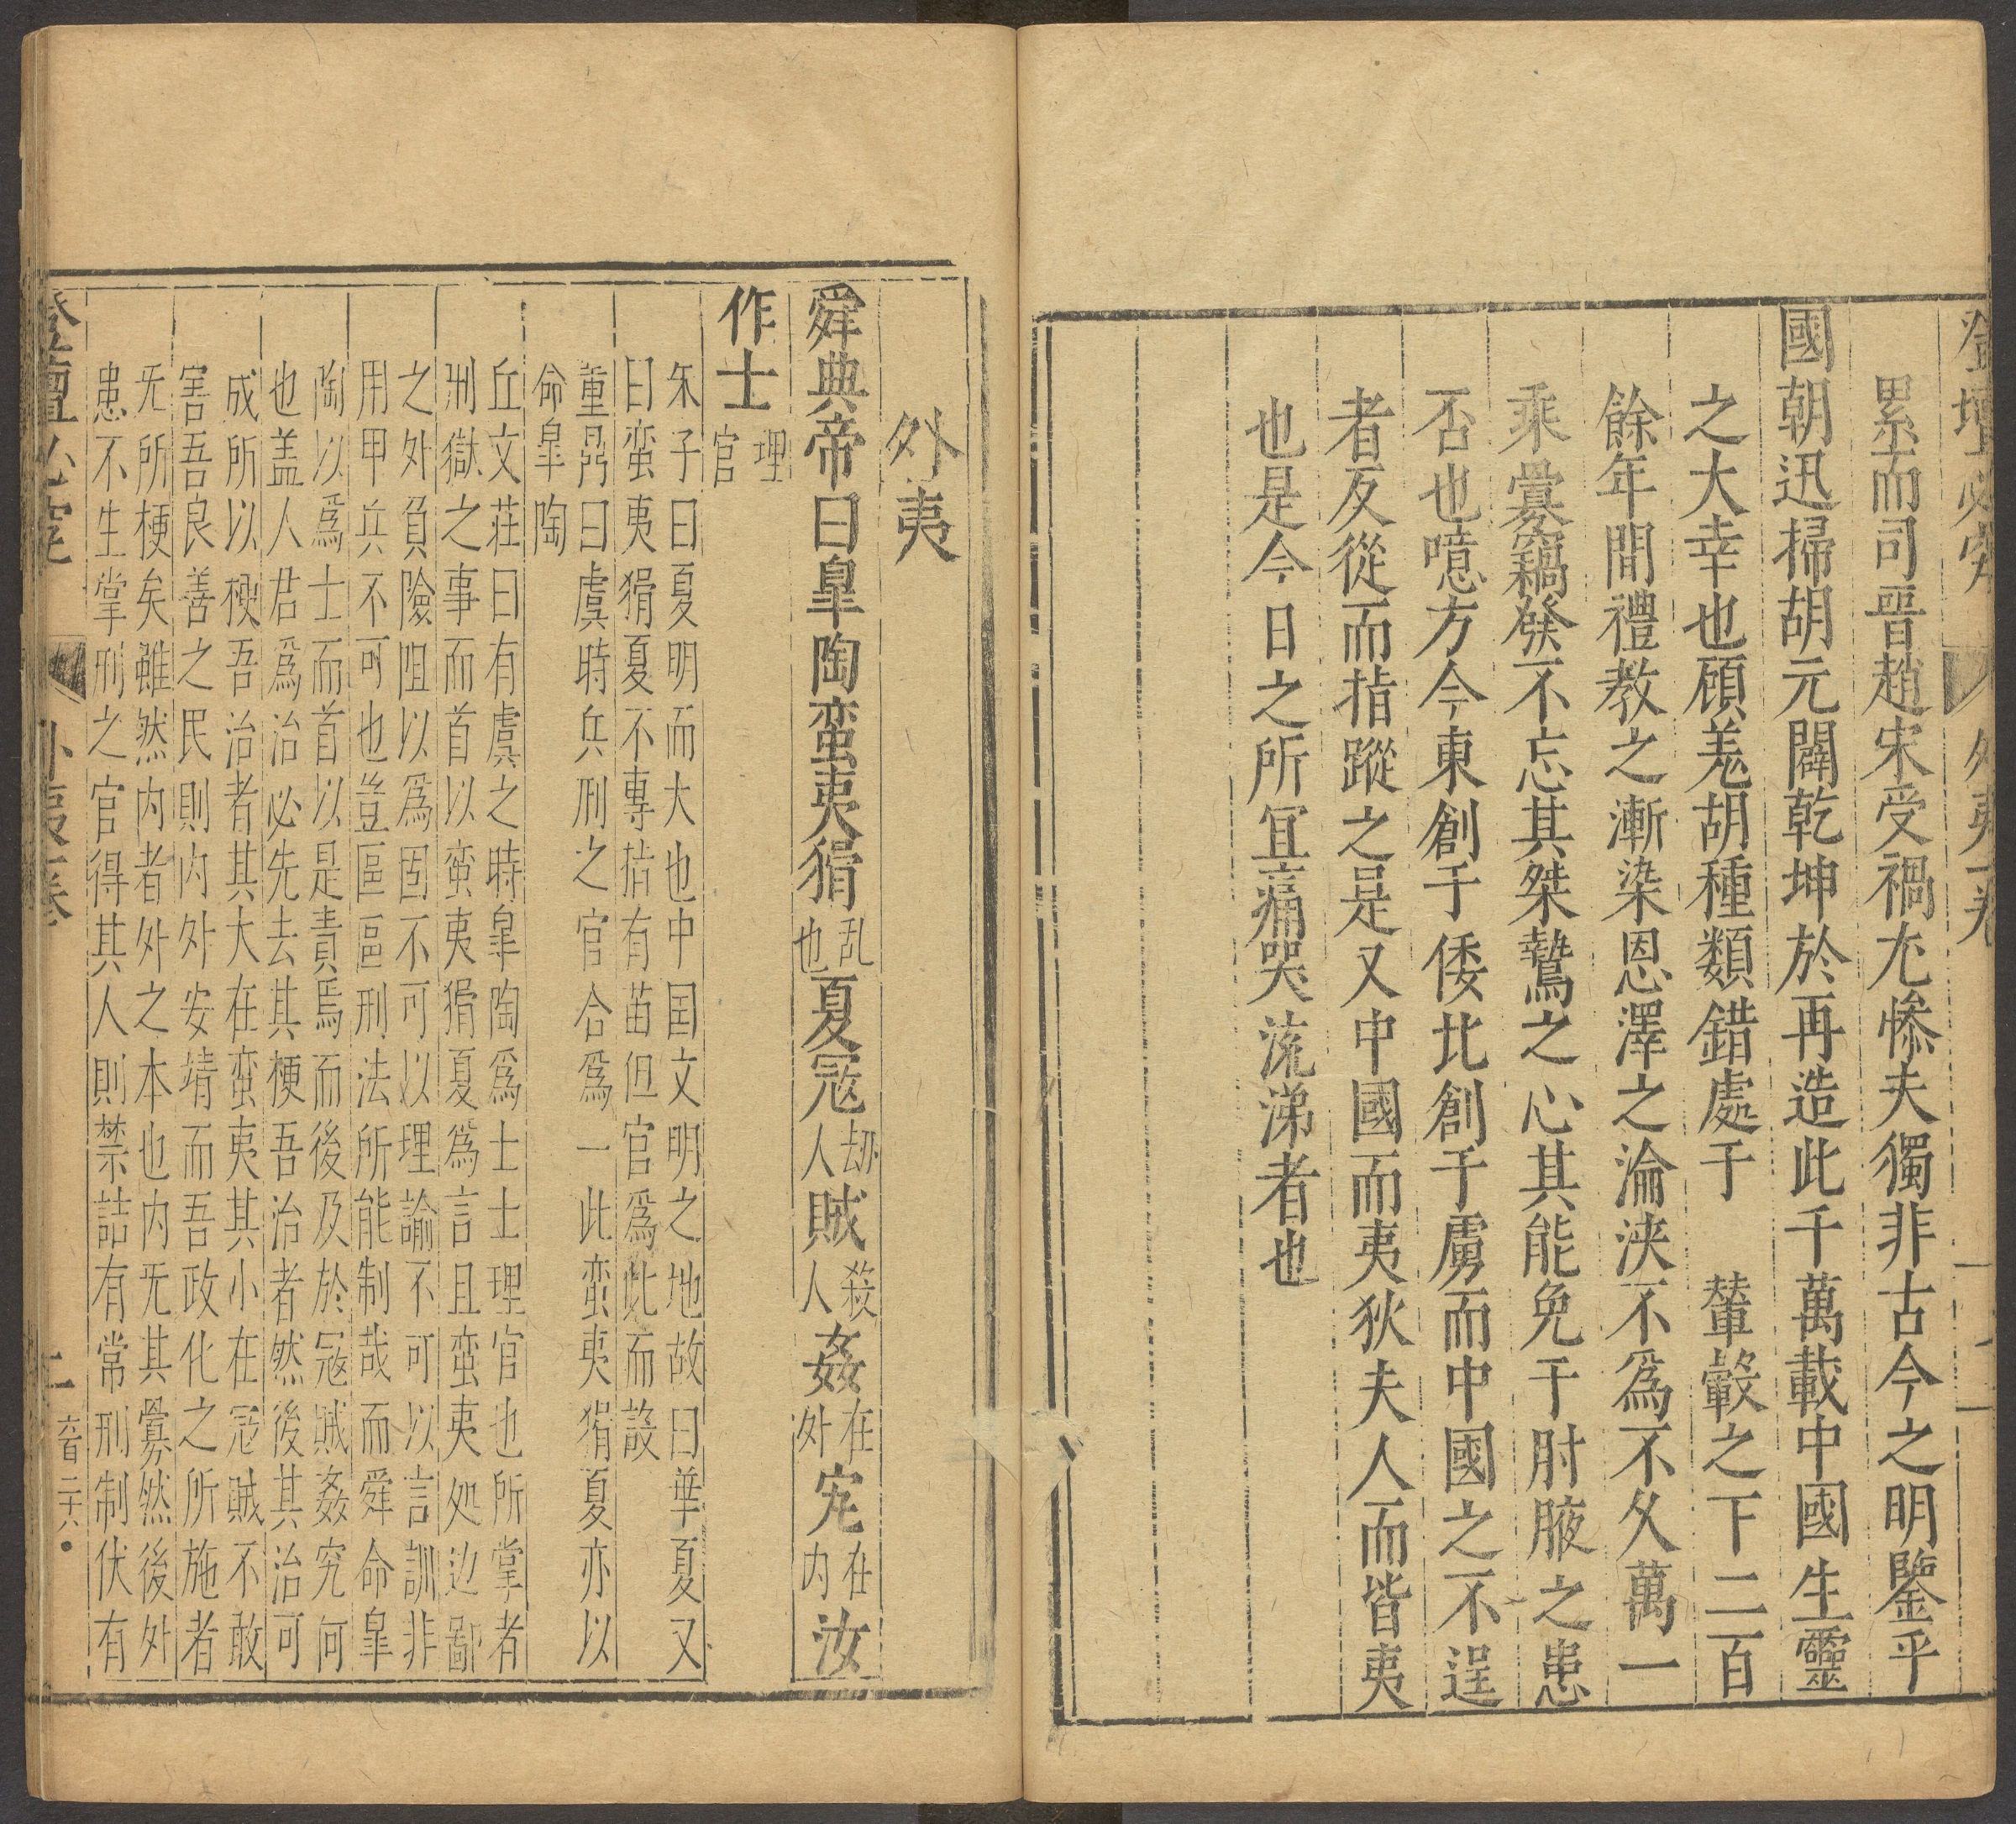 登壇必究
外夷一卷
累而司晉趙宋受禍尤慘夫獨非古今之明鑒乎
國朝迅掃胡元闢乾坤於再造此千萬載中國生靈
之大幸也顧羗胡種類錯處于　輦轂之下二百
餘年間禮教之漸染恩澤之淪浹不爲不久萬一
乘釁竊發不忘其桀驁之心其能免于肘腋之患
否也噫方今東創于倭北創于虜而中國之不逞
者反從而指蹤之是又中國而夷狄夫人而皆夷
也是今日之所宜痛哭流涕者也
外夷
舜典帝曰皐陶蛮夷猾乱也夏冦劫人賊殺人姦在外宄在内汝
作士理官
朱子曰夏明而大也中国文明之地故曰華夏又
曰蛮夷猾夏不專指有苗但官爲此而設
董鼎曰虞時兵刑之官合爲一此蛮夷猾夏亦以
命皐陶
丘文莊曰有虞之時皐陶爲士士理官也所掌者
刑獄之事而首以蛮夷猾夏爲言且蛮夷处边鄙
之外負險阻以爲固不可以理諭不可以言訓非
用甲兵不可也豈區區刑法所能制哉而舜命皐
陶以爲士而首以是責焉而後及於冦賊姦宄何
也盖人君爲治必先去其梗吾治者然後其治可
成所以梗吾治者其大在蛮夷其小在冦賊不敢
害吾良善之民則内外安靖而吾政化之所施者
无所梗矣雖然内者外之本也内无其釁然後外
患不生掌刑之官得其人則禁詰有常刑制伏有
登壇必究
外夷一卷
二